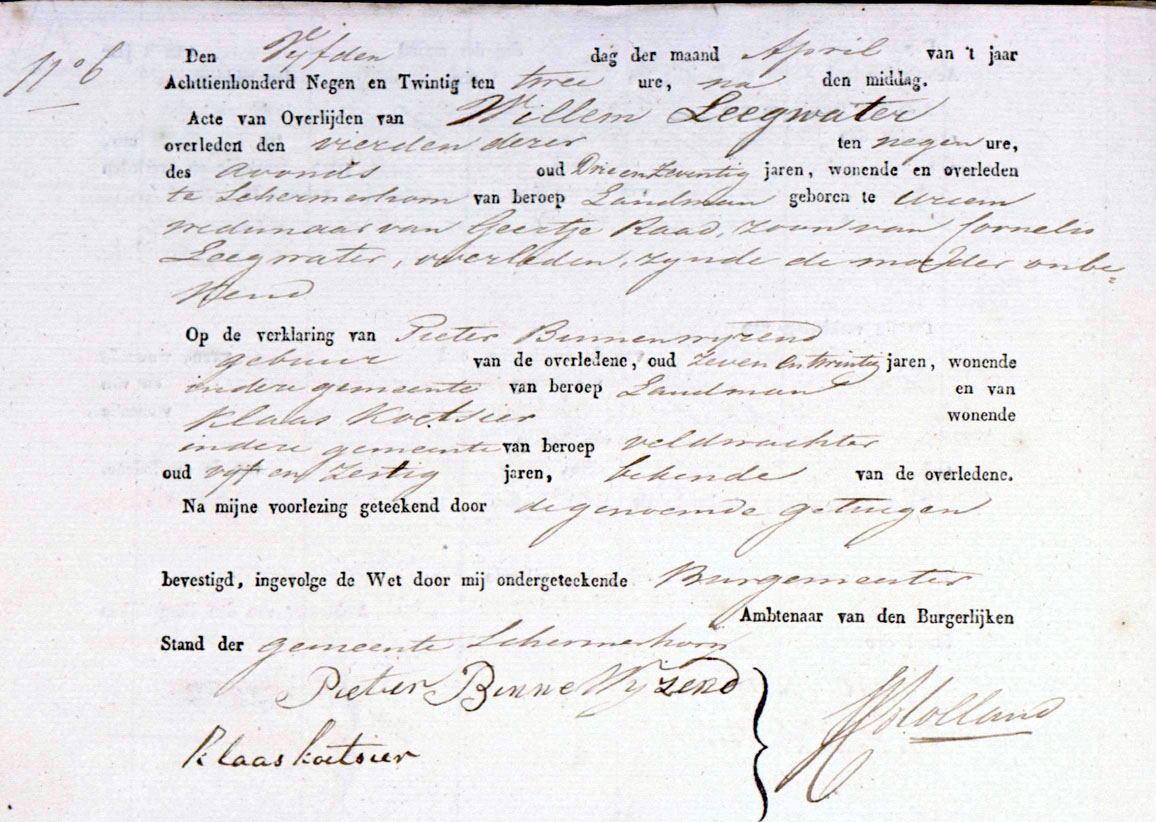 N° 6
Den Vijfden dag der maand April van 't jaar
Achttienhonderd Negen en Twintig ten twee ure, na den middag.
Acte van Overlijden van Willem Leegwater
overleden den vierden dezer ten negen ure,
des avonds oud Drie en Zeventig jaren, wonende en overleden
te Schermerhorn van beroep Landman geboren te Ursem
weduwnaar van Geertje Raad, zoon van Cornelis
Leegwater, overleden, zynde de moeder onbe=
kend
Op de verklaring van Pieter Binnenwyzend
gebuur van de overledene, oud Zeven en twintig jaren, wonende
in deze gemeente van beroep Landman en van
Klaas Koetsier wonende
in deze gemeente van beroep veldwachter
oud vyf en Zestig jaren, bekende van de overledene.
Na mijne voorlezing geteekend door de genoemde getuigen
bevestigd, ingevolge de Wet door mij ondergeteekende Burgemeester
Ambtenaar van den Burgerlijken
Stand der gemeente Schermerhorn
Pieter Binne Wyzend
Holland
Klaas koetsier